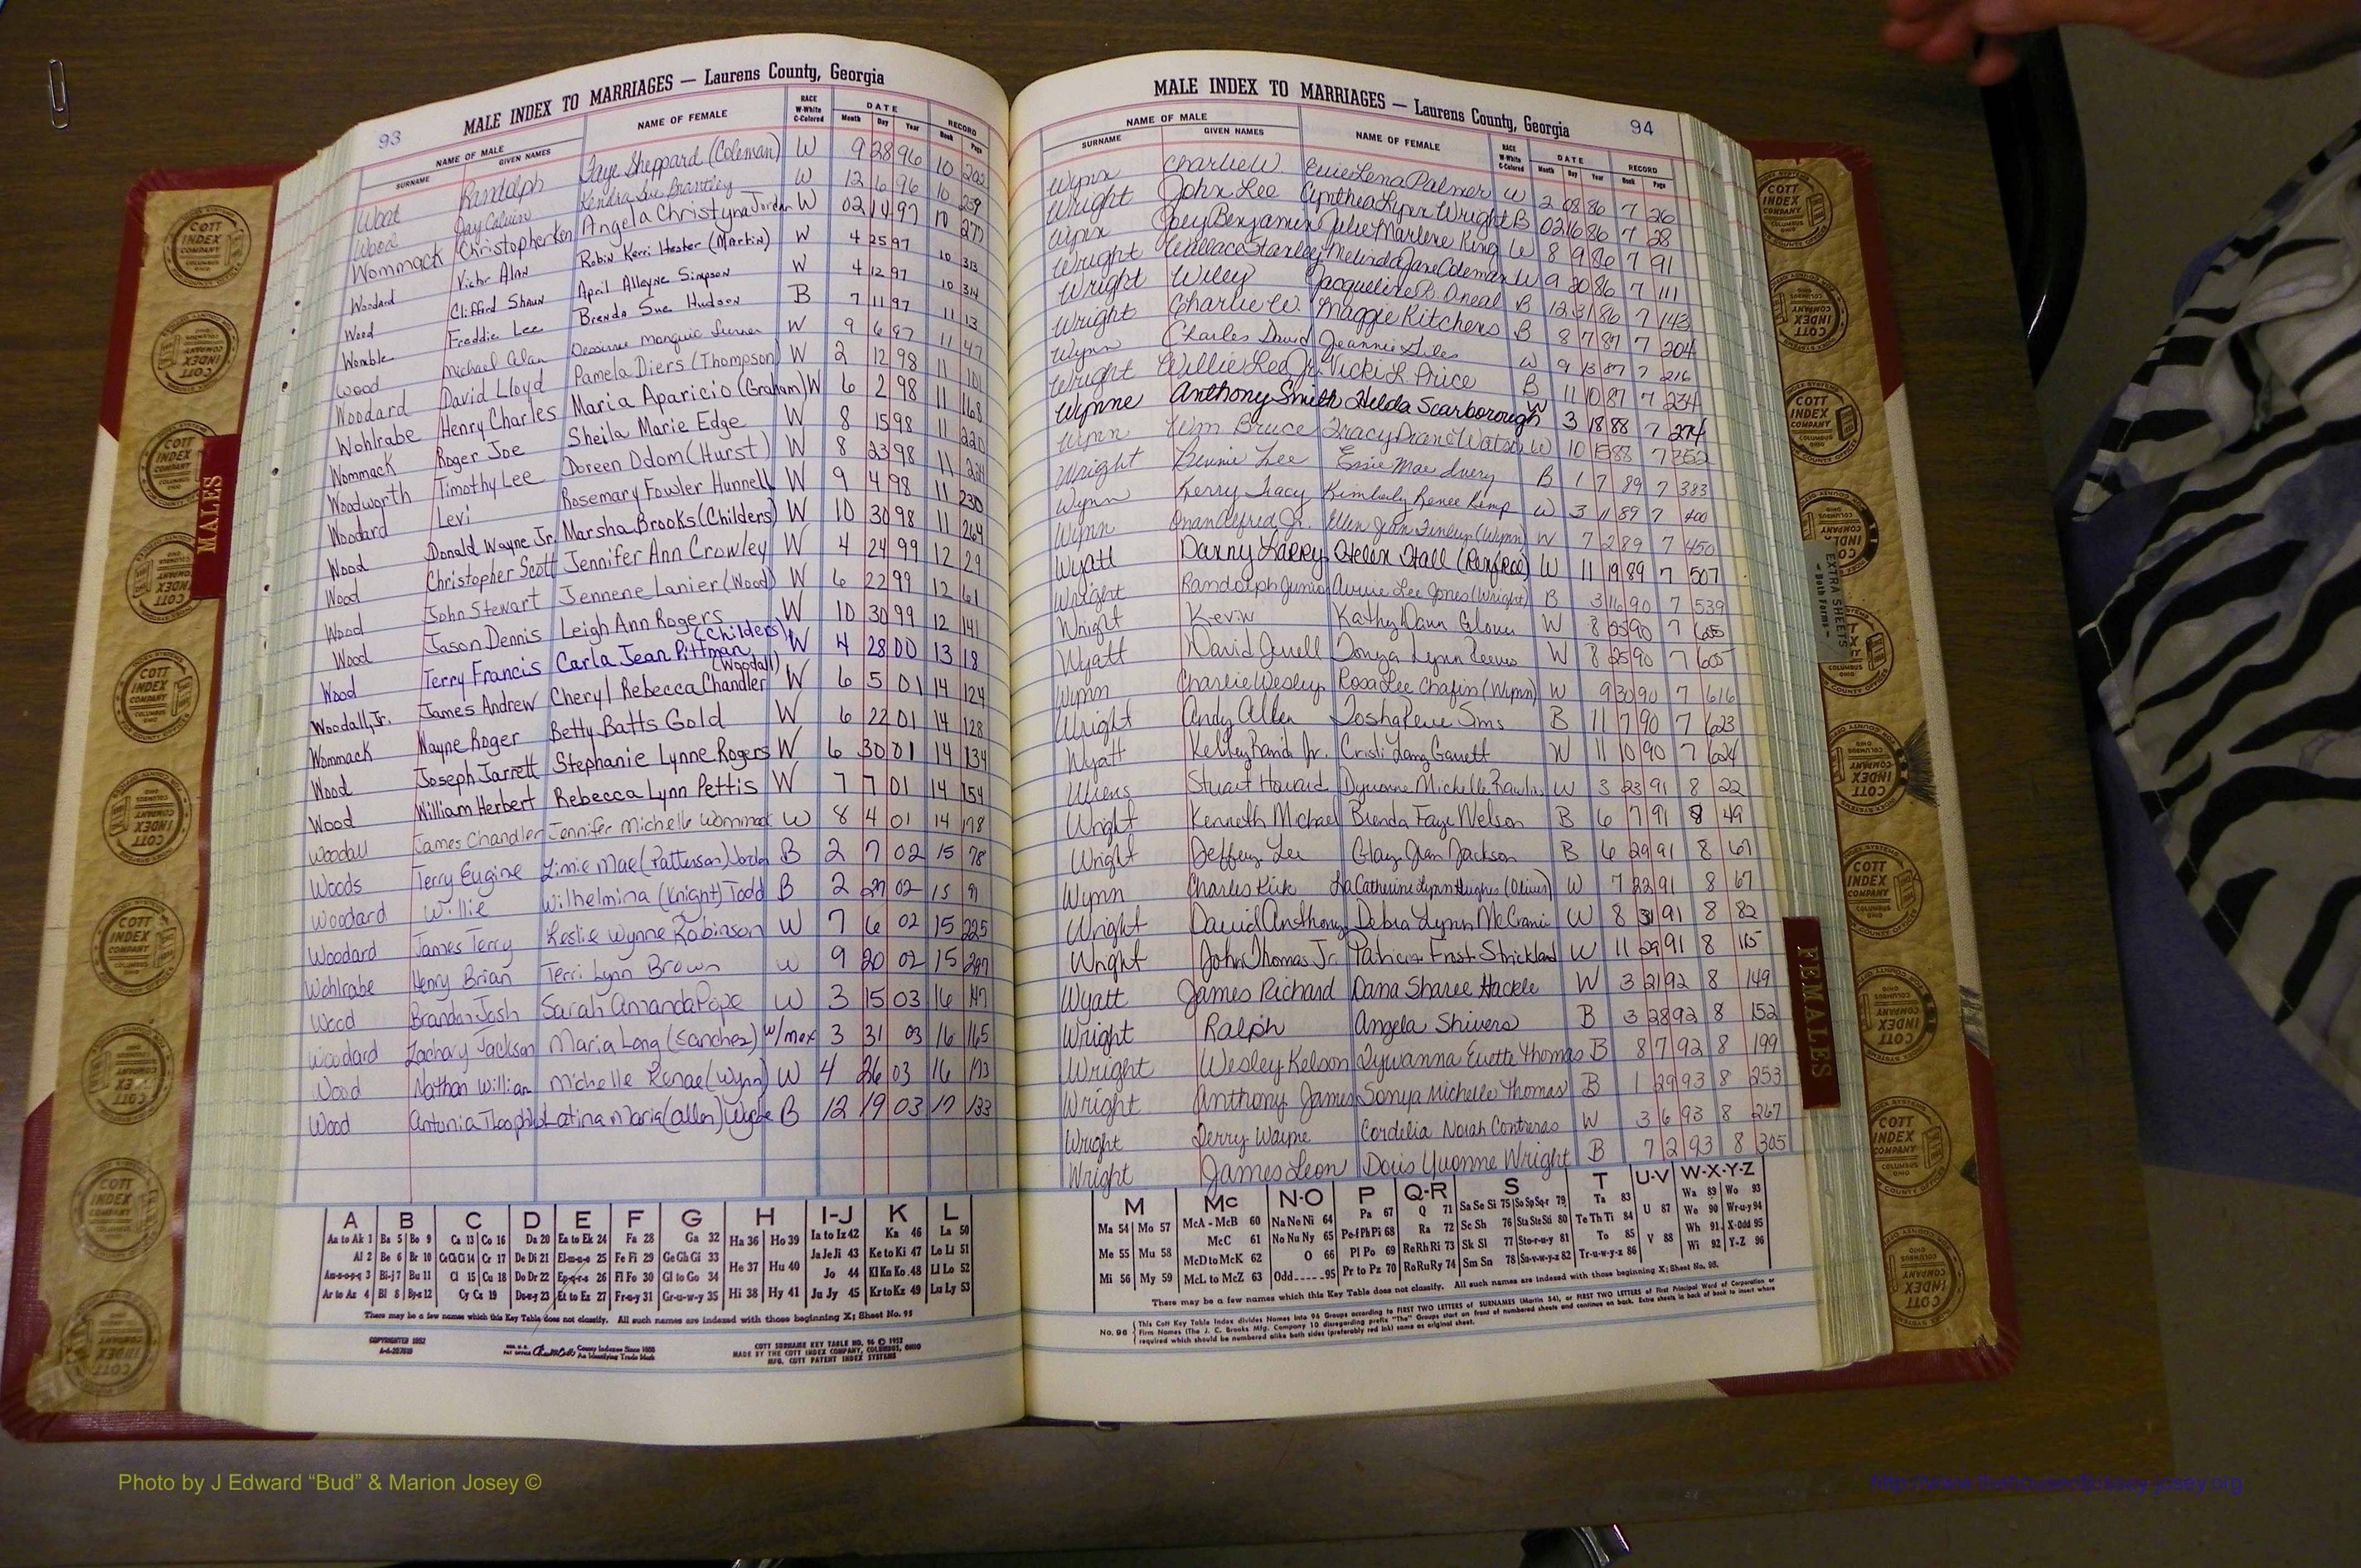 93
MALE INDEX TO MARRIAGES — Laurens County, Georgia
NAME OF MALE NAME OF FEMALE RACE DATE RECORD
SURNAME GIVEN NAMES W-White C-Colored Month Day Year Book Page
Wood Randolph Faye Sheppard (Coleman) W 9 28 96 10 202
Wood Jay Calvin Kendra Sue Brantley W 12 6 96 10 239
Wommack Christopher Ken Angela Christyna Jordan W 02 14 97 10 277
Woodard Victor Alan Robin Kerri Hester (Martin) W 4 25 97 10 313
Wood Clifford Shaun April Alleyne Simpson W 4 12 97 10 314
Womble Freddie Lee Brenda Sue Hudson B 7 11 97 11 13
Wood Michael Alan W 9 6 97 11 47
Woodard David Lloyd Pamela Diers (Thompson) W 2 12 98 11 101
Wohlrabe Henry Charles Maria Aparicio (Graham) W 6 2 98 11 168
Wommack Roger Joe Sheila Marie Edge W 8 15 98 11 220
Woodworth Timothy Lee Doreen Odom (Hurst) W 8 23 98 11
Woodard Levi Rosemary Fowler Hunnell W 9 4 98 11 230
Wood Donald Wayne Jr. Marsha Brooks (Childers) W 10 30 98 11 264
Wood Christopher Scott Jennifer Ann Crowley W 4 24 99 12 29
Wood John Stewart Jennene Lanier (Wood) W 6 22 99 12 61
Wood Jason Dennis Leigh Ann Rogers W 10 30 99 12 141
Wood Terry Francis Carla Jean Pittman (Childers) W 4 28 00 13 18
Woodall, Jr. James Andrew Cheryl Rebecca Chandler (Woodall) W 6 5 01 14 124
Wommack Wayne Roger Betty Batts Gold W 6 22 01 14 128
Wood Joseph Jarrett Stephanie Lynne Rogers W 6 30 01 14 134
Wood William Herbert Rebecca Lynn Pettis W 7 7 01 14 154
Woodall James Chandler Jennifer Michelle Wommack W 8 4 01 14 178
Woods Terry Eugine Linnie Mae (Patterson) B 2 7 02 15 78
Woodard Willie Wilhelmina (Knight) Todd B 2 27 02 15 91
Woodard James Terry Leslie Wynne Robinson W 7 6 02 15 225
Wohlrabe Henry Brian Terri Lynn Brown W 9 20 02 15 297
Wood Brandon Josh Sarah Amanda Pope W 3 15 03 16 147
Woodard Zachary Jackson Maria Long (Sanchez) W/mex 3 31 03 16 165
Wood Nathan William Michelle Renae (Wynn) W 4 26 03 16 193
Wood Latina Maria (Allen) B 12 19 03 17 133
MALES
A B C D E F G H I-J K L
Aa to Ak 1 Ba 5 Bo 9 Ca 13 Co 16 Da 20 Ea to Ek 24 Fa 28 Ga 32 Ha 36 Ho 39 Ia to Iz 42 Ka 46 La 50
Al 2 Be 6 Br 10 Ce Ch Ci 14 Cr 17 De Di 21 El-m-n-o 25 Fe Fi 29 Ge Gh Gi 33 He 37 Hu 40 Ja Je Ji 43 Ke to Ki 47 Le Li 51
Am-n-o-p-q 3 Bi-j 7 Bu 11 Cl 15 Cu 18 Do Dr 22 Ep-q-r-s 26 Fl Fo 30 Gl to Go 34 Hi 38 Hy 41 Jo 44 Kl Kn Ko 48 Ll Lo 52
Ar to Az 4 Bl 8 By-z 12 Cy Cz 19 Du-w-y 23 Et to Ez 27 Fr-u-y 31 Gr-u-w-y 35 Ju Jy 45 Kr to Kz 49 Lu Ly 53
There may be a few names which this Key Table does not classify. All such names are indexed with those beginning X; Sheet No. 95
COTT SURNAME KEY TABLE NO. 96 © 1952
MADE BY THE COTT INDEX COMPANY, COLUMBUS, OHIO
MFG. COTT PATENT INDEX SYSTEMS
MALE INDEX TO MARRIAGES — Laurens County, Georgia
94
NAME OF MALE NAME OF FEMALE RACE DATE RECORD
SURNAME GIVEN NAMES W-White C-Colored Month Day Year Book Page
Wynn Charlie W. Evie Lena Palmer W 2 08 86 7 26
Wright John Lee Cynthea Lynn Wright B 02 16 86 7 28
Wynn Joey Benjamin Julie Marlene King W 8 9 86 7 91
Wright Wallace Stanley Melinda Jane Coleman W 9 20 86 7 111
Wright Wiley Jacqueline B. Oneal B 12 31 86 7 143
Wright Charlie W. Maggie Kitchens B 8 7 87 7 204
Wynn Charles David Jeannie Giles W 9 13 87 7 216
Wright Willie Lee Jr. Vicki L. Price B 11 10 87 7 234
Wynne Anthony Smith Hilda Scarborough W 3 18 88 7 274
Wynn Kim Bruce Tracy Diane Watson W 10 15 88 7 352
Wright Bennie Lee Essie Mae Ivery B 1 7 89 7 383
Wynn Kerry Tracy Kimberly Renee Kemp W 3 11 89 7 400
Wynn (Wynn) W 7 2 89 7 450
Wyatt Danny Larry Helen Hall (Renfroe) W 11 19 89 7 507
Wright Randolph Junior Annie Lee Jones (Wright) B 3 16 90 7 539
Wright Kevin Kathy Dawn Glover W 8 25 90 7 605
Wyatt David Jewell Tonya Lynn Reeves W 8 25 90 7 605
Wynn Charlie Wesley Rosa Lee Chafin (Wynn) W 9 30 90 7 616
Wright Andy Allen B 11 7 90 7 623
Wyatt Kelley Jr. Cristi Lang Garrett W 11 10 90 7 624
Wiens Stuart Howard Dyvonne Michelle W 3 23 91 8 22
Wright Kenneth Michael Brenda Faye Nelson B 6 7 91 8 49
Wright Jeffery Lee Jean Jackson B 6 29 91 8 61
Wynn Charles Kirk LaCatherine Lynn Hughes (Oliver) W 7 22 91 8 67
Wright David Anthony Debra Lynn McCranie W 8 31 91 8 82
Wright John Thomas Jr. Patricia Frost Strickland W 11 29 91 8 115
Wyatt James Richard Dana Sharee Hackle W 3 21 92 8 149
Wright Ralph Angela Shivers B 3 28 92 8 152
Wright Wesley Kelson Dywanna Evette Thomas B 8 7 92 8 199
Wright Anthony James Sonya Michelle Thomas B 1 29 93 8 253
Wright Jerry Wayne Cordelia Norah Contreras W 3 6 93 8 267
Wright James Leon Doris Yvonne Wright B 7 2 93 8 305
EXTRA SHEETS
FEMALES
M Mc N-O P Q-R S T U-V W-X-Y-Z
Ma 54 Mo 57 McA - McB 60 Na Ne Ni 64 Pa 67 Q 71 Sa Se Si 75 So Sp Sq-r 79 Ta 83 U 87 Wa 89 Wo 93
Me 55 Mu 58 McC 61 No Nu Ny 65 Pe-f Ph Pi 68 Ra 72 Sc Sh 76 Sta Ste Sti 80 Te Th Ti 84 V 88 We 90 Wr-u-y 94
Mi 56 My 59 McD to McK 62 O 66 Pl Po 69 Re Rh Ri 73 Sk Sl 77 Sto-r-u-y 81 To 85 Wh 91 X-Odd 95
McL to McZ 63 Odd-----95 Pr to Pz 70 Ro Ru Ry 74 Sm Sn 78 Su-v-w-y-z 82 Tr-u-w-y-z 86 Wi 92 Y-Z 96
There may be a few names which this Key Table does not classify. All such names are indexed with those beginning X; Sheet No. 95.
COTT INDEX COMPANY COLUMBUS OHIO
Photo by J Edward “Bud” & Marion Josey ©
http://www.thehouseofjossey-josey.org